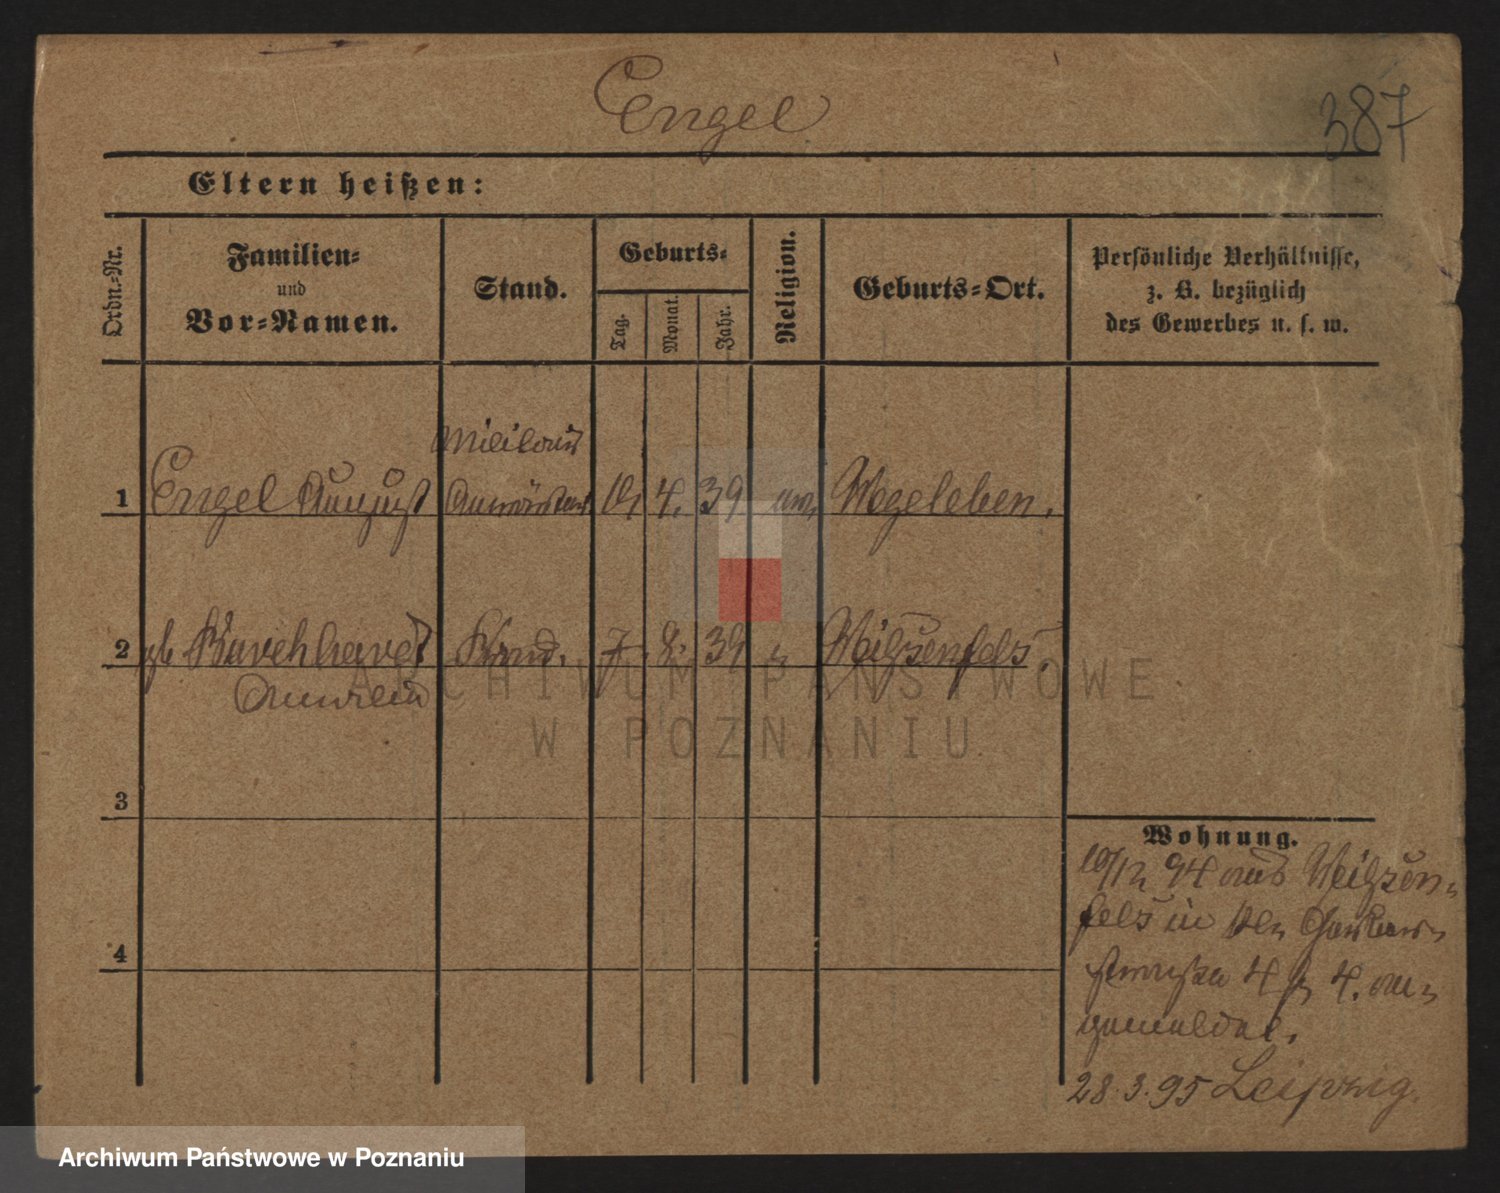 Engel
387
Eltern heißen:
Ordn.-Nr.
Familien-
und
Vor-Namen.
Stand.
Geburts-
Tag.
Monat.
Jahr.
Religion.
Geburts-Ort.
Persönliche Verhältnisse,
z. B. bezüglich
des Gewerbes u. s. w.
Militair
1 Engel August Anwärter 4. 39 Wegeleben.
2 gb 7. 8. 39 Weißenfels
3
4
Wohnung.
10/12 94 aus Weißen-
fels in
4 4. an-
gemeldet.
28.3.95 Leipzig.
ARCHIWUM PAŃSTWOWE
W POZNANIU
Archiwum Państwowe w Poznaniu